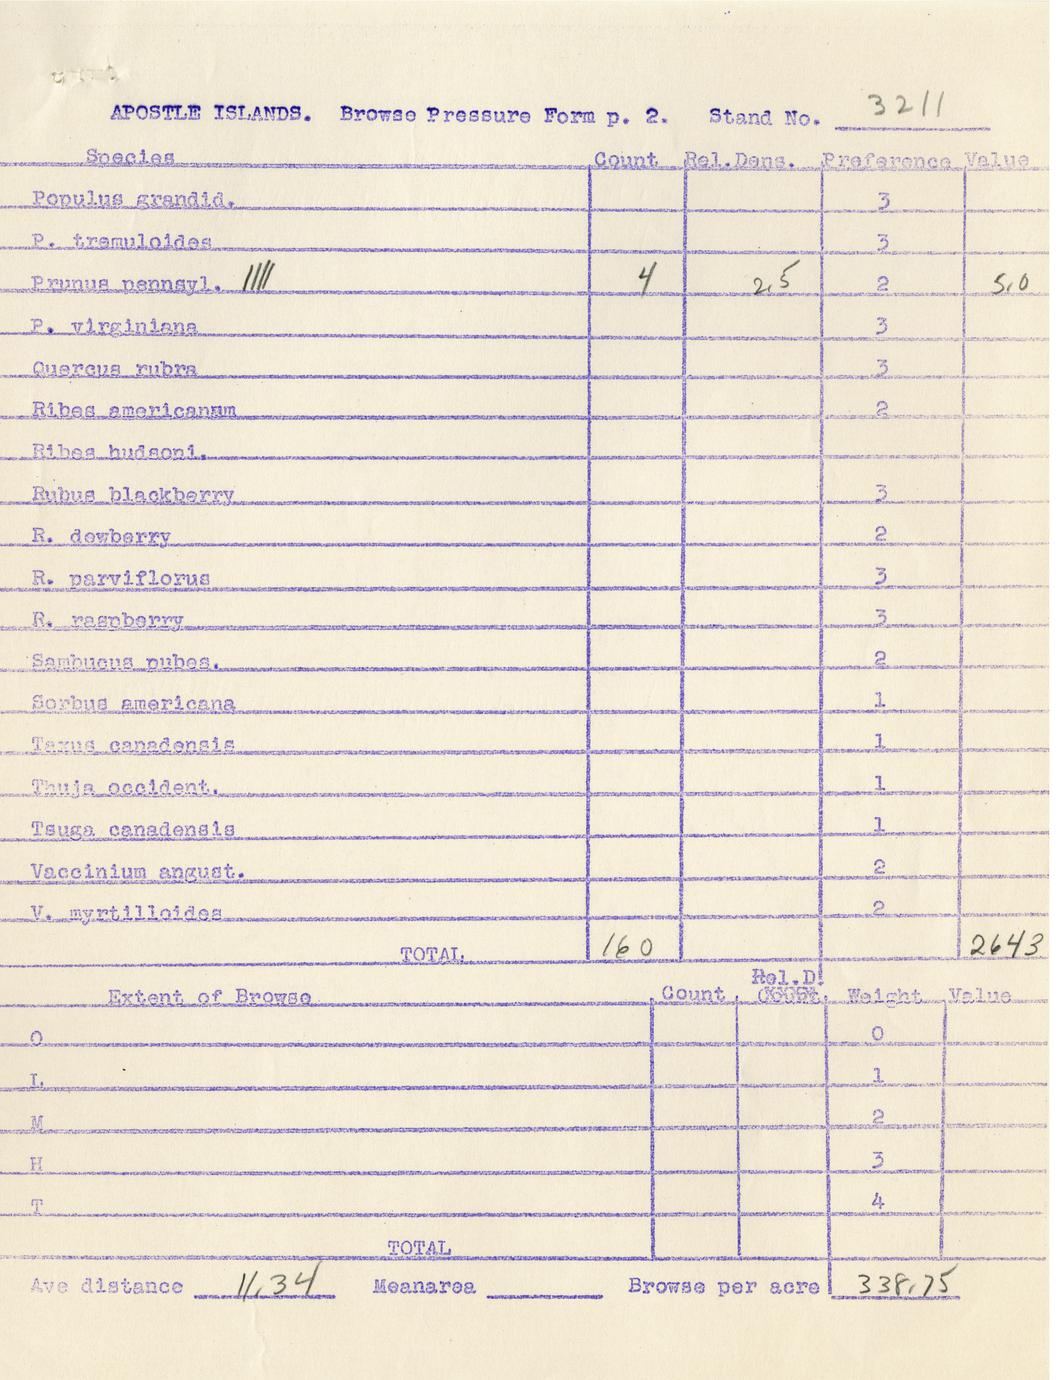 APOSTLE ISLANDS. Browse Pressure Form p. 2. Stand No. 3211
Species Count Rel.Dens. Preference Value
Populus grandid. 3
P. tremuloides 3
Prunus pennsyl. //// 4 2.5 2 5.0
P. virginiana 3
Quercus rubra 3
Ribes americanum 2
Ribes hudsoni.
Rubus blackberry 3
R. dewberry 2
R. parviflorus 3
R. raspberry 3
Sambucus pubes. 2
Sorbus americana 1
Taxus canadensis 1
Thuja occident. 1
Tsuga canadensis 1
Vaccinium angust. 2
V. myrtilloides 2
TOTAL 160 2643
Rel.D.
Extent of Browse Count Weight Value
O 0
L 1
M 2
H 3
T 4
TOTAL
Ave distance 11.34 Meanarea Browse per acre 338.75